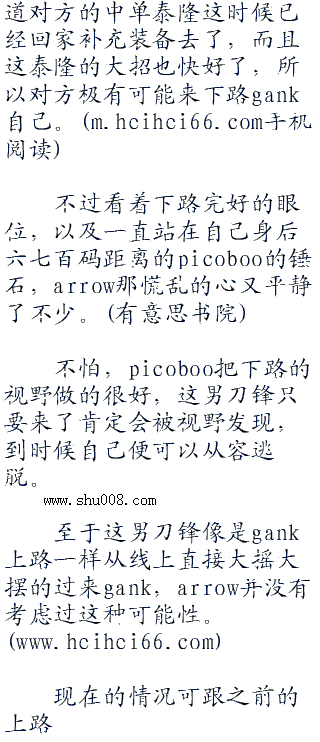 道对方的中单泰隆这时候已
经回家补充装备去了，而且
这泰隆的大招也快好了，所
以对方极有可能来下路gank
自己。(m.hcihci66.com手机
阅读)
不过看着下路完好的眼
位，以及一直站在自己身后
六七百码距离的picoboo的锤
石，arrow那慌乱的心又平静
了不少。(有意思书院)
不怕，picoboo把下路的
视野做的很好，这男刀锋只
要来了肯定会被视野发现，
到时候自己便可以从容逃
脱。
www.shu008.com
至于这男刀锋像是gank
上路一样从线上直接大摇大
摆的过来gank，arrow并没有
考虑过这种可能性。
(www.hcihci66.com)
现在的情况可跟之前的
上路